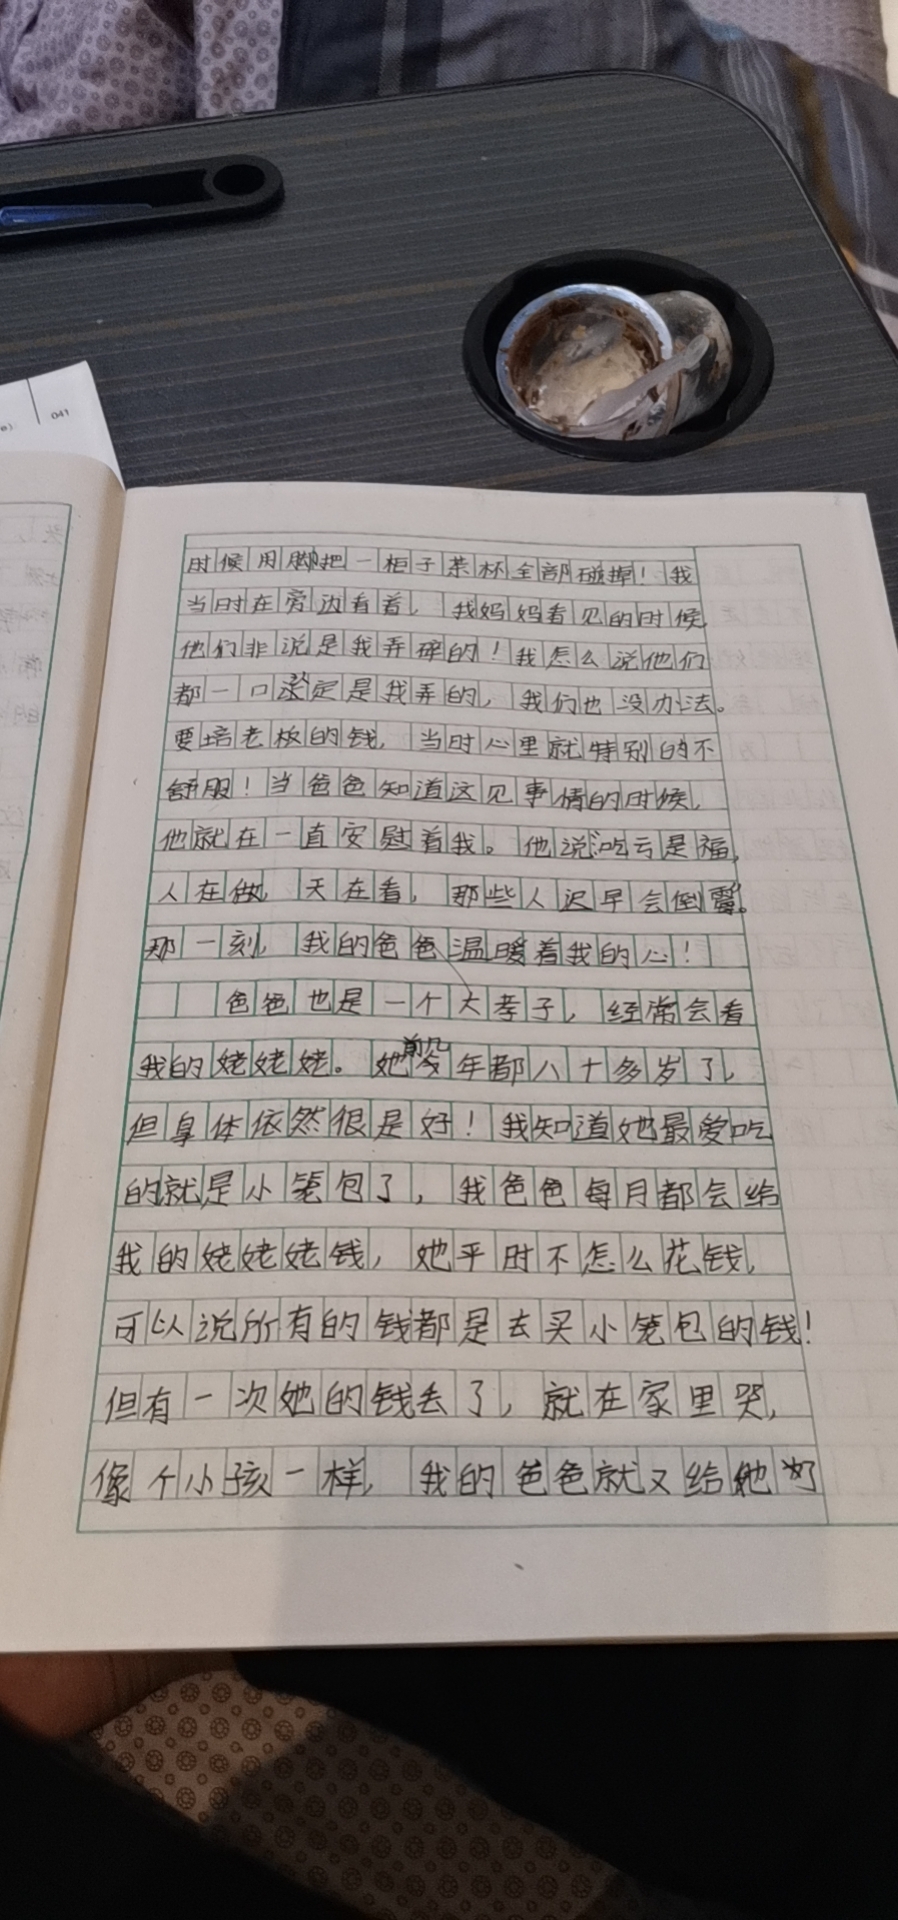 041
时候用脚把一柜子茶杯全部碰掉！我
当时在旁边看着，我妈妈看见的时候
他们非说是我弄碎的！我怎么说他们
都一口定是我弄的，我们也没办法。
要培老板的钱，当时心里就特别的不
舒服！当爸爸知道这见事情的时候，
他就在一直安慰着我。他说吃亏是福，
人在做，天在看，那些人迟早会倒霉。
那一刻，我的爸爸温暖着我的心！
爸爸也是一个大孝子，经常会看
我的姥姥姥。她前几年都八十多岁了，
但身体依然很是好！我知道她最爱吃
的就是小笼包了，我爸爸每月都会给
我的姥姥姥钱，她平时不怎么花钱，
可以说所有的钱都是去买小笼包的钱！
但有一次她的钱丢了，就在家里哭，
像个小孩一样，我的爸爸就又给她好